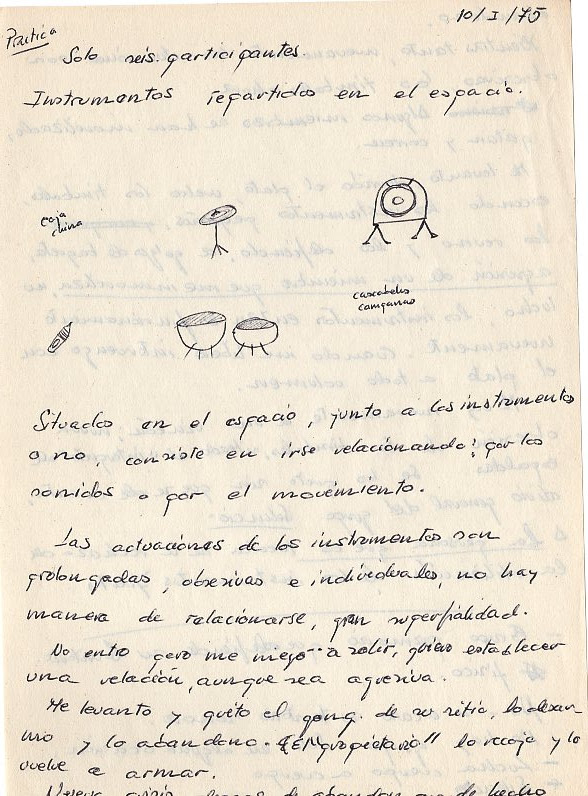 10/I/75
Práctica
Solo seis participantes.
Instrumentos repartidos en el espacio.
caja
china
cascabeles
campanas
Situados en el espacio, junto a los instrumentos
o no, consiste en irse relacionando; por los
sonidos o por el movimiento.
Las actuaciones de los instrumentos son
prolongadas, obsesivas e individuales, no hay
manera de relacionarse, gran superfialidad.
No entro pero me niego a salir, quiero establecer
una relación, aunque sea agresiva.
Me levanto y quito el gong de su sitio, lo desar-
mo y lo abandono. "El propietario" lo recoje y lo
vuelve a armar.
de hecho